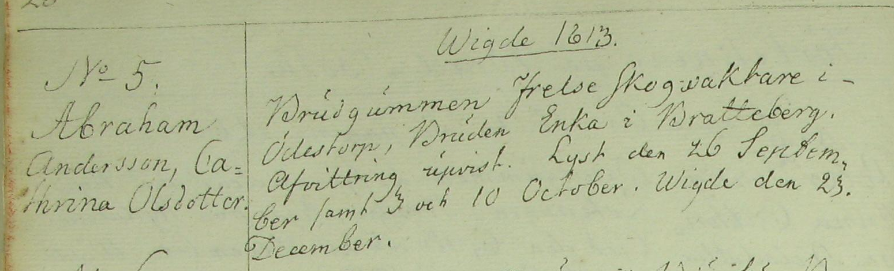 Wigde 1813.
No 5.
Abraham
Andersson, Ca=
thrina Olsdotter.
Brudgummen Frelse skogvaktare i -
Ödestorp, Bruden Enka i Bratteberg.
Afvittring upvist. Lyst den 26 Septem,
ber samt 3 och 10 October. Wigde den 23.
December.